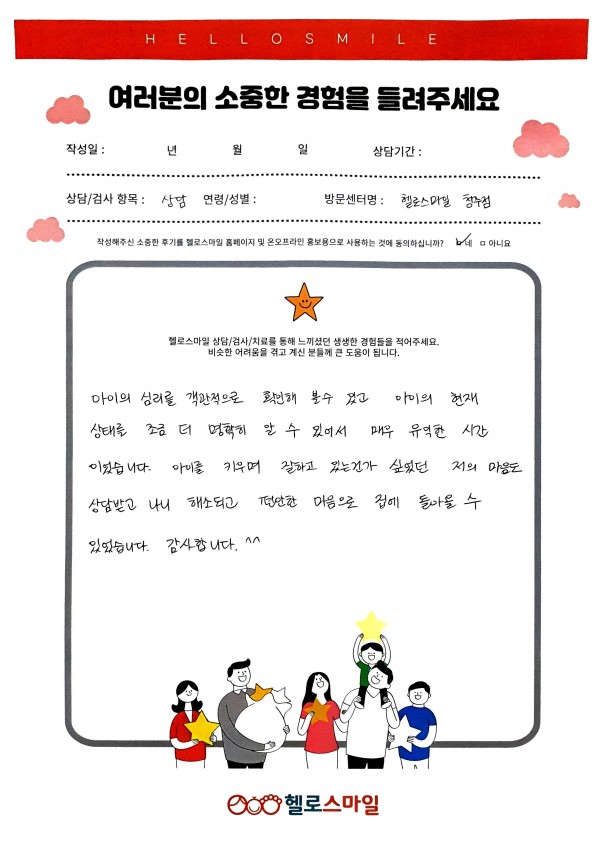 HELLOSMILE
여러분의 소중한 경험을 들려주세요
작성일 : 년 월 일 상담기간 :
상담/검사 항목 : 상담 연령/성별 : 방문센터명 : 헬로스마일 청주점
작성해주신 소중한 후기를 헬로스마일 홈페이지 및 온오프라인 홍보용으로 사용하는 것에 동의하십니까? ☑네 □아니요
헬로스마일 상담/검사/치료를 통해 느끼셨던 생생한 경험들을 적어주세요.
비슷한 어려움을 겪고 계신 분들께 큰 도움이 됩니다.
아이의 심리를 객관적으로 확인해 볼수 있었고 아이의 현재
상태를 조금 더 명확히 알 수 있어서 매우 유익한 시간
이었습니다. 아이를 키우며 잘하고 있는건가 싶었던 저의 마음도
상담받고 나니 해소되고 편안한 마음으로 집에 돌아올 수
있었습니다. 감사합니다. ^^
헬로스마일